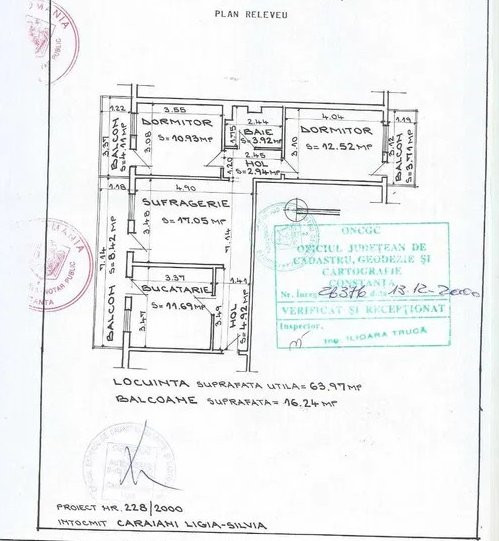 PLAN RELEVEU
1.22
3.55
2.44
4.04
1.19
DORMITOR
S=10.93 MP
3.08
BALCON
S=4.11 MP
3.37
1.75
BAIE
S=3.92 MP
2.45
HOL
S=2.94 MP
1.20
3.10
DORMITOR
S=12.52 MP
3.12
BALCON
S=3.71 MP
1.18
4.90
SUFRAGERIE
S=17.05 MP
3.48
7.14
BALCON S=8.42 MP
3.37
BUCATARIE
S=11.69 MP
3.47
3.47
1.41
HOL
S=4.92 MP
ONCGC
OFICIUL JUDEȚEAN DE
CADASTRU, GEODEZIE ȘI
CARTOGRAFIE
CONSTANȚA
Nr. Înreg. 13.12-2000
VERIFICAT ȘI RECEPȚIONAT
Inspector,
ing. ILIOARA TRUCĂ
LOCUINTA SUPRAFATA UTILA = 63.97 MP
BALCOANE SUPRAFATA = 16.24 MP
PROIECT NR. 228/2000
INTOCMIT CARAIANI LIGIA-SILVIA